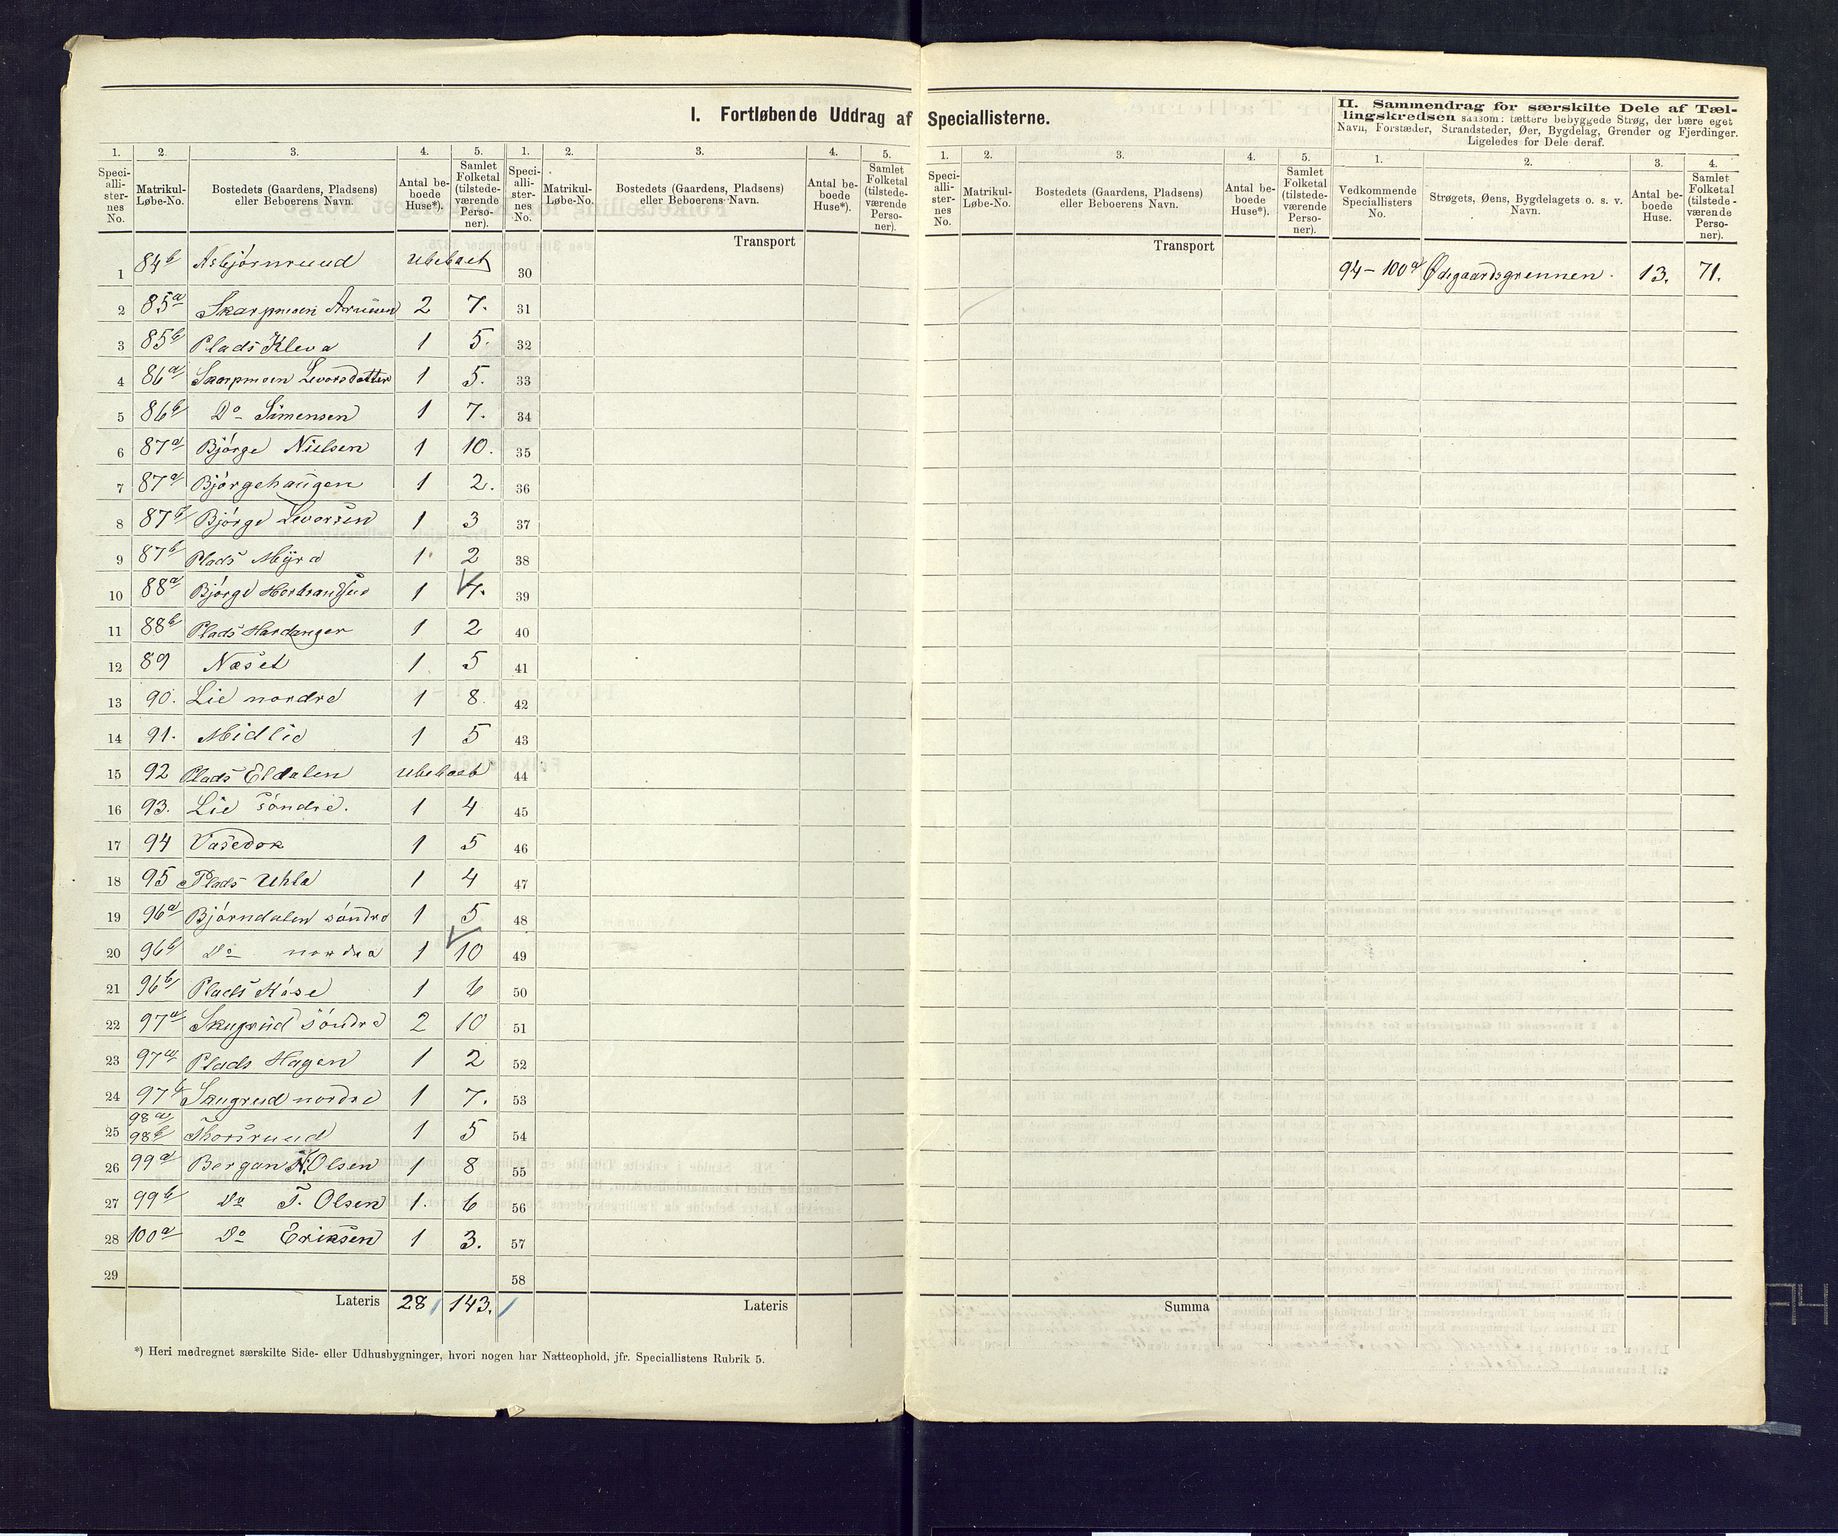 I. Fortløbende Uddrag af Speciallisterne.
II. Sammendrag for særskilte Dele af Tæl-
lingskredsen saasom: tættere bebyggede Strøg, der bære eget
Navn, Forstæder, Strandsteder, Øer, Bygdelag, Grender og Fjerdinger.
Ligeledes for Dele deraf.
1. 2. 3. 4. 5. 1. 2. 3. 4. 5. 1. 2. 3. 4. 5. 1. 2. 3. 4.
Speciallisternes No. Matrikul-Løbe-No. Bostedets (Gaardens, Pladsens) eller Beboerens Navn. Antal beboede Huse*). Samlet Folketal (tilstedeværende Personer).
Speciallisternes No. Matrikul-Løbe-No. Bostedets (Gaardens, Pladsens) eller Beboerens Navn. Antal beboede Huse*). Samlet Folketal (tilstedeværende Personer).
Speciallisternes No. Matrikul-Løbe-No. Bostedets (Gaardens, Pladsens) eller Beboerens Navn. Antal beboede Huse*). Samlet Folketal (tilstedeværende Personer).
Vedkommende Speciallisters No. Strøgets, Øens, Bygdelagets o. s. v. Navn. Antal beboede Huse. Samlet Folketal (tilstedeværende Personer).
Transport Transport
1 84b Asbjørnruud Ubeboet 30 94-100a Ødegaardsgrennen. 13. 71.
2 85a Skarpmoen 2 7. 31
3 85b Plads Kleva 1 5. 32
4 86a Skarpmoen Levorsdatter 1 5. 33
5 86b Do Simensen 1 7. 34
6 87a Bjørge Nielsen 1 10. 35
7 87a Bjørgehaugen 1 2. 36
8 87b Bjørge Levorsen 1 3 37
9 87b Plads Myra 1 2 38
10 88a Bjørge 1 4. 39
11 88b Plads Hardanger 1 2 40
12 89 Næset 1 5 41
13 90. Lie nordre 1 8. 42
14 91. Midlie 1 5 43
15 92 Plads Eldalen Ubeboet 44
16 93. Lie søndre. 1 4 45
17 94 Vasedok 1 5 46
18 95 Plads Uhla 1 4 47
19 96a Bjørndalen søndre 1 5 48
20 96b Do nordre 1 10 49
21 96b Plads Kåse 1 6 50
22 97a Skugrud søndre 2 10 51
23 97a Plads Hagen 1 2 52
24 97b Skugrud nordre 1 7. 53
25 98a 98b Thorsruud 1 5 54
26 99a Bergan N. Olsen 1 8 55
27 99b Do T. Olsen 1. 6 56
28 100a Do Eriksen 1 3. 57
29 58
Lateris 28 143. Lateris Summa
*) Heri medregnet særskilte Side- eller Udhusbygninger, hvori nogen har Natteophold, jfr. Speciallistens Rubrik 5.